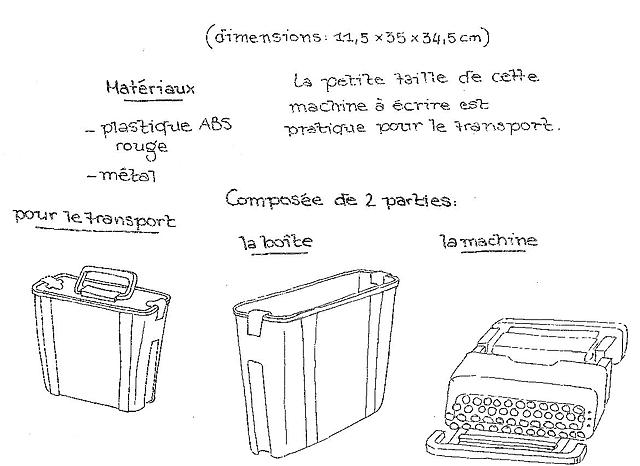 (dimensions: 11,5 x 35 x 34,5 cm)
Matériaux
- plastique ABS
rouge
- métal
La petite taille de cette
machine à écrire est
pratique pour le transport.
Composée de 2 parties:
pour le transport
la boîte
la machine